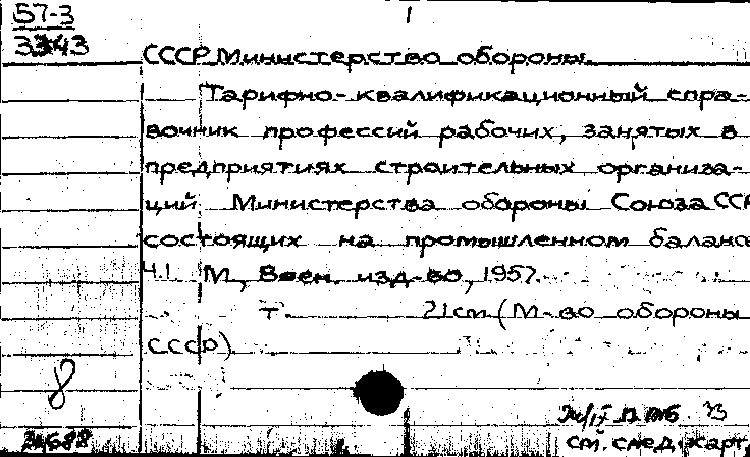 57-3
3343
1
СССР Министерство обороны.
Тарифно-квалификационный спра-
вочник профессий рабочих, занятых в
предприятиях строительных организа-
ций Министерства обороны Союза ССР
состоящих на промышленном баланс
Ч.1 М, Воен. изд-во, 1957.
т. 21 см (М-во обороны
СССР).
8
см. след. карт.